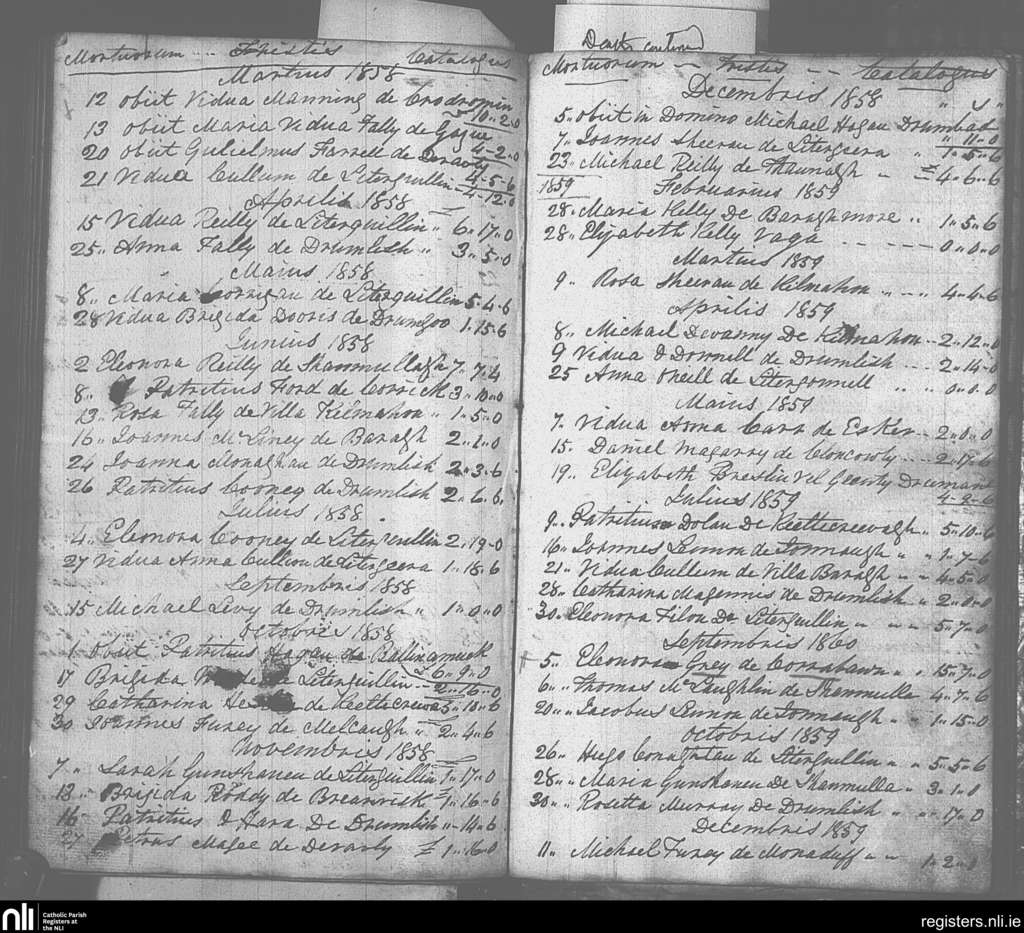 Mortuorum -- Tristis Catalogus
Martius 1858
12 obiit Vidua Manning de Crodromin
10-2-0
13 obiit Maria Vidua Fally de
4-2-0
20 obiit Gulielmus Farrell de Deraoty
4-5-6
21 Vidua Cullum de Leterguillin 4-12-0
Aprilis 1858
15 Vidua Reilly de Leterguillin " 6-17-0
25 " Anna Fally de Drumlish " 3-5-0
Maius 1858
8 " Maria Corrigan de Leterguillin 5-4-6
28 Vidua Brigida Dooris de Drumgoo 1-15-6
Junius 1858
2 Eleonora Reilly de Shanmullagh 7-7-4
8 " Patritius Ford de Corrick 3-10-0
13 " Rosa Fally de Villa Kilmahon " 1-5-0
16 " Ioannes McLiney de Baragh 2-2-0
24 Ioanna Monaghan de Drumlish 2-3-6
26 Patritius Cooney de Drumlish 2-6-6
Julius 1858
4 " Eleonora Cooney de Leterguillin 2-19-0
27 Vidua Anna Cullum de Letergeera 1-18-6
Septembris 1858
15 Michael Levy de Drumlish " 1-0-0
Octobris 1858
1 obiit Patritius Hagan de Ballinamuck
6-9-0
17 Brigida de Leterguillin -- 2-16-0
29 Catharina de Keeltecreeva 5-10-6
30 Furey de Melcaugh " 2-4-6
Novembris 1858
7 " Sarah Gunshanen de Leterguillin 1-17-0
13 " Brigida Roddy de Breanrisk 1-16-6
16 " Patritius O Hara De Drumlish "-14-6
27 Petrus Magee de Deraoty £ 1-16-0
Deaths continued
Mortuorum -- Tristis -- Catalogus
Decembris 1858
5 " obiit in Domino Michael Hagan Drumbab
"-11-0
7 " Ioannes Sheeran de Letergeera " 1-5-6
23 " Michael Reilly de Thaunagh " £4-6-6
1859
Februarius 1859
28 " Maria Kelly De Baraghmore " 1-5-6
28 " Elizabeth Kelly Vaga -- -- 0-0-0
Martius 1859
9 " Rosa Sheeran de Kilmahon " - " 4-4-6
Aprilis 1859
8 " Michael Devanny De Kilmahon -- 2-12-0
9 Vidua O Donnell de Drumlish -- 2-14-0
25 Anna Oneill de Letergonnell " " 0-0-0
Maius 1859
7 " Vidua Anna Carr de Esker -- 2-0-0
15 " Daniel Magarry de Cloncowly -- 2-17-6
19 " Elizabeth Breslin vel Gearty Drumanа
4-2-6
Julius 1859
9 " Patritius Dolan De Keeltecreevagh " 5-10-6
16 " Ioannes Lennon de Sonnaugh " " 1-7-6
21 " Vidua Cullum de Villa Baragh " " 4-5-0
28 " Catharina Magennis de Drumlish " 2-0-0
30 " Eleonora Filon De Leterguillin " " 5-7-0
Septembris 1860
5 " Eleonora Grey de Corrabawn " " 15-7-0
6 " Thomas McLaughlin de Shanmulla 4-7-6
20 " " Iacobus Lennon de Sonnaugh " " 1-15-0
Octobris 1859
26 " Hugo Conaghtan de Leterguillin " " 5-5-6
28 " " Maria Gunshanen De Shanmulla " 3-1-0
30 " " Rosetta Murray De Drumlish " "-17-0
Decembris 1859
11 " Michael Furey de Monaduff " " 1-2-0
nli
Catholic Parish
Registers at
the NLI
registers.nli.ie